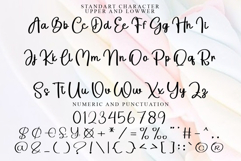 STANDART CHARACTER
UPPER AND LOWWER
Aa Bb Cc Dd Ee Ff Gg Hh Ii
Jj Kk Ll Mm Nn Oo Pp Qq Rr
Ss Tt Uu Vv Ww Xx Yy Zz
NUMERIC AND PUNCTUATION
0123456789